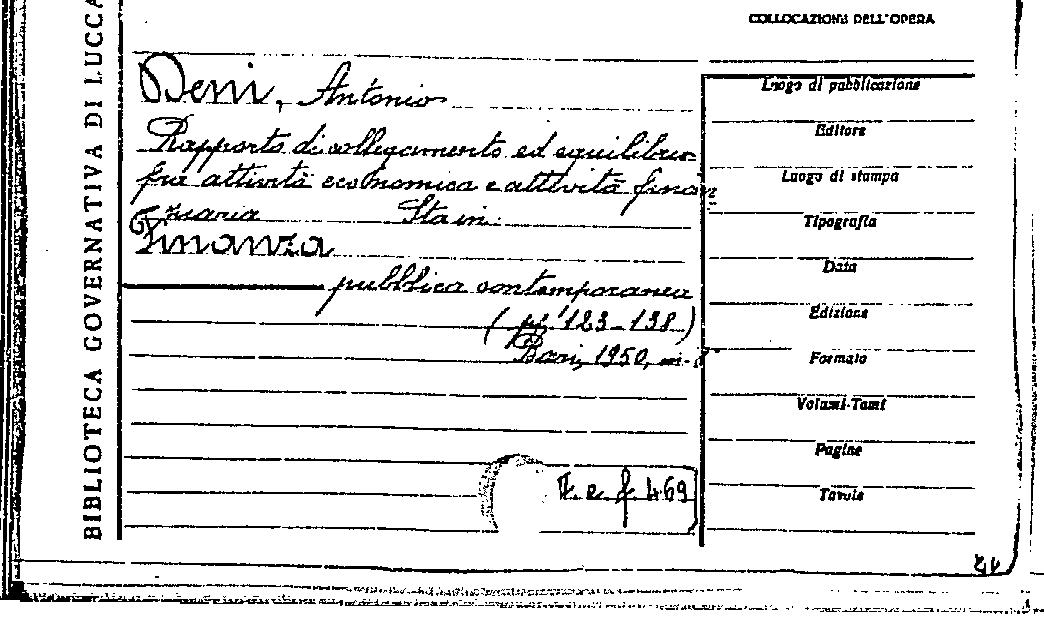 COLLOCAZIONE DELL'OPERA
BIBLIOTECA GOVERNATIVA DI LUCCA
Deni, Antonio
Rapporto di collegamento ed equilibrio
fra attività economica e attività finan
ziaria Sta in:
Finanza
pubblica contemporanea
(pp. 123-138)
Bari, 1950, in-8°
469
Luogo di pubblicazione
Editore
Luogo di stampa
Tipografia
Data
Edizione
Formato
Volumi-Tomi
Pagine
Tavole